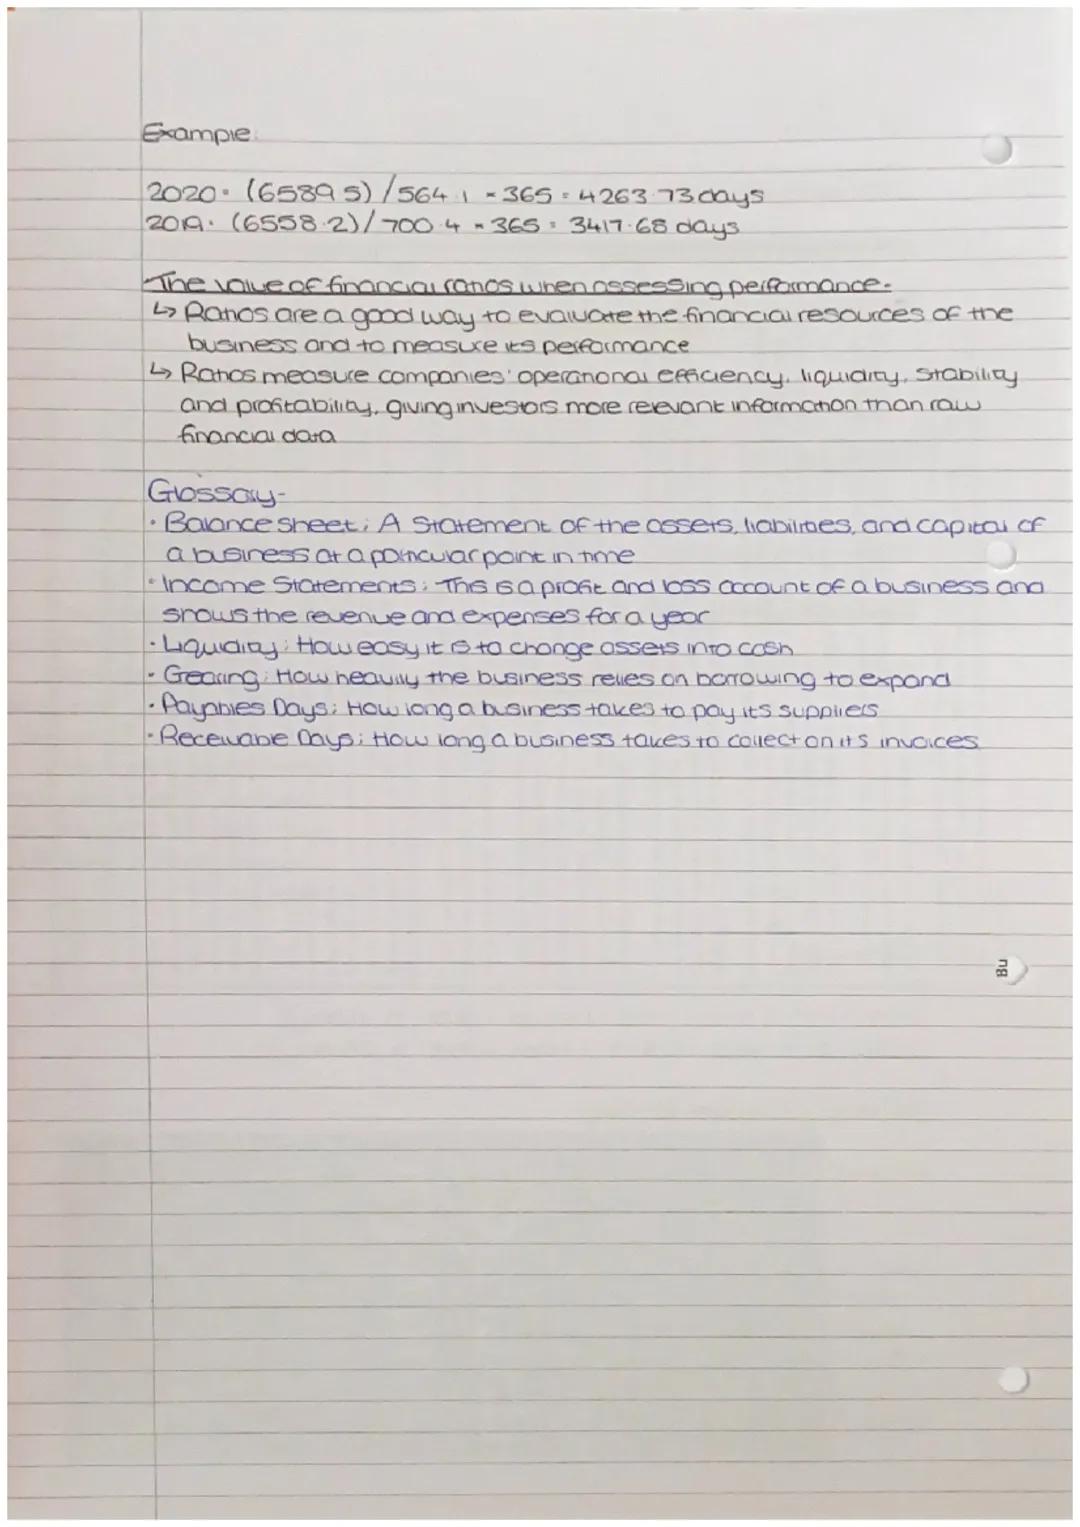 Example:
2020: (6589.5)/564.1 × 365 = 4263.73 days
2019: (6558.2)/700.4 × 365 = 3417.68 days
The value of financial ratios when assessing performance-
↳ Ratios are a good way to evaluate the financial resources of the
business and to measure its performance
↳ Ratios measure companies' operational efficiency, liquidity, stability
and profitability, giving investors more relevant information than raw
financial data
Glossary-
· Balance sheet; A statement of the assets, liabilities, and capital of
a business at a particular point in time
· Income Statements; This is a profit and loss account of a business and
shows the revenue and expenses for a year
· Liquidity; How easy it is to change assets into cash
· Gearing; How heavily the business relies on borrowing to expand
· Payables Days; How long a business takes to pay its suppliers
· Receivable Days; How long a business takes to collect on its invoices
Bu